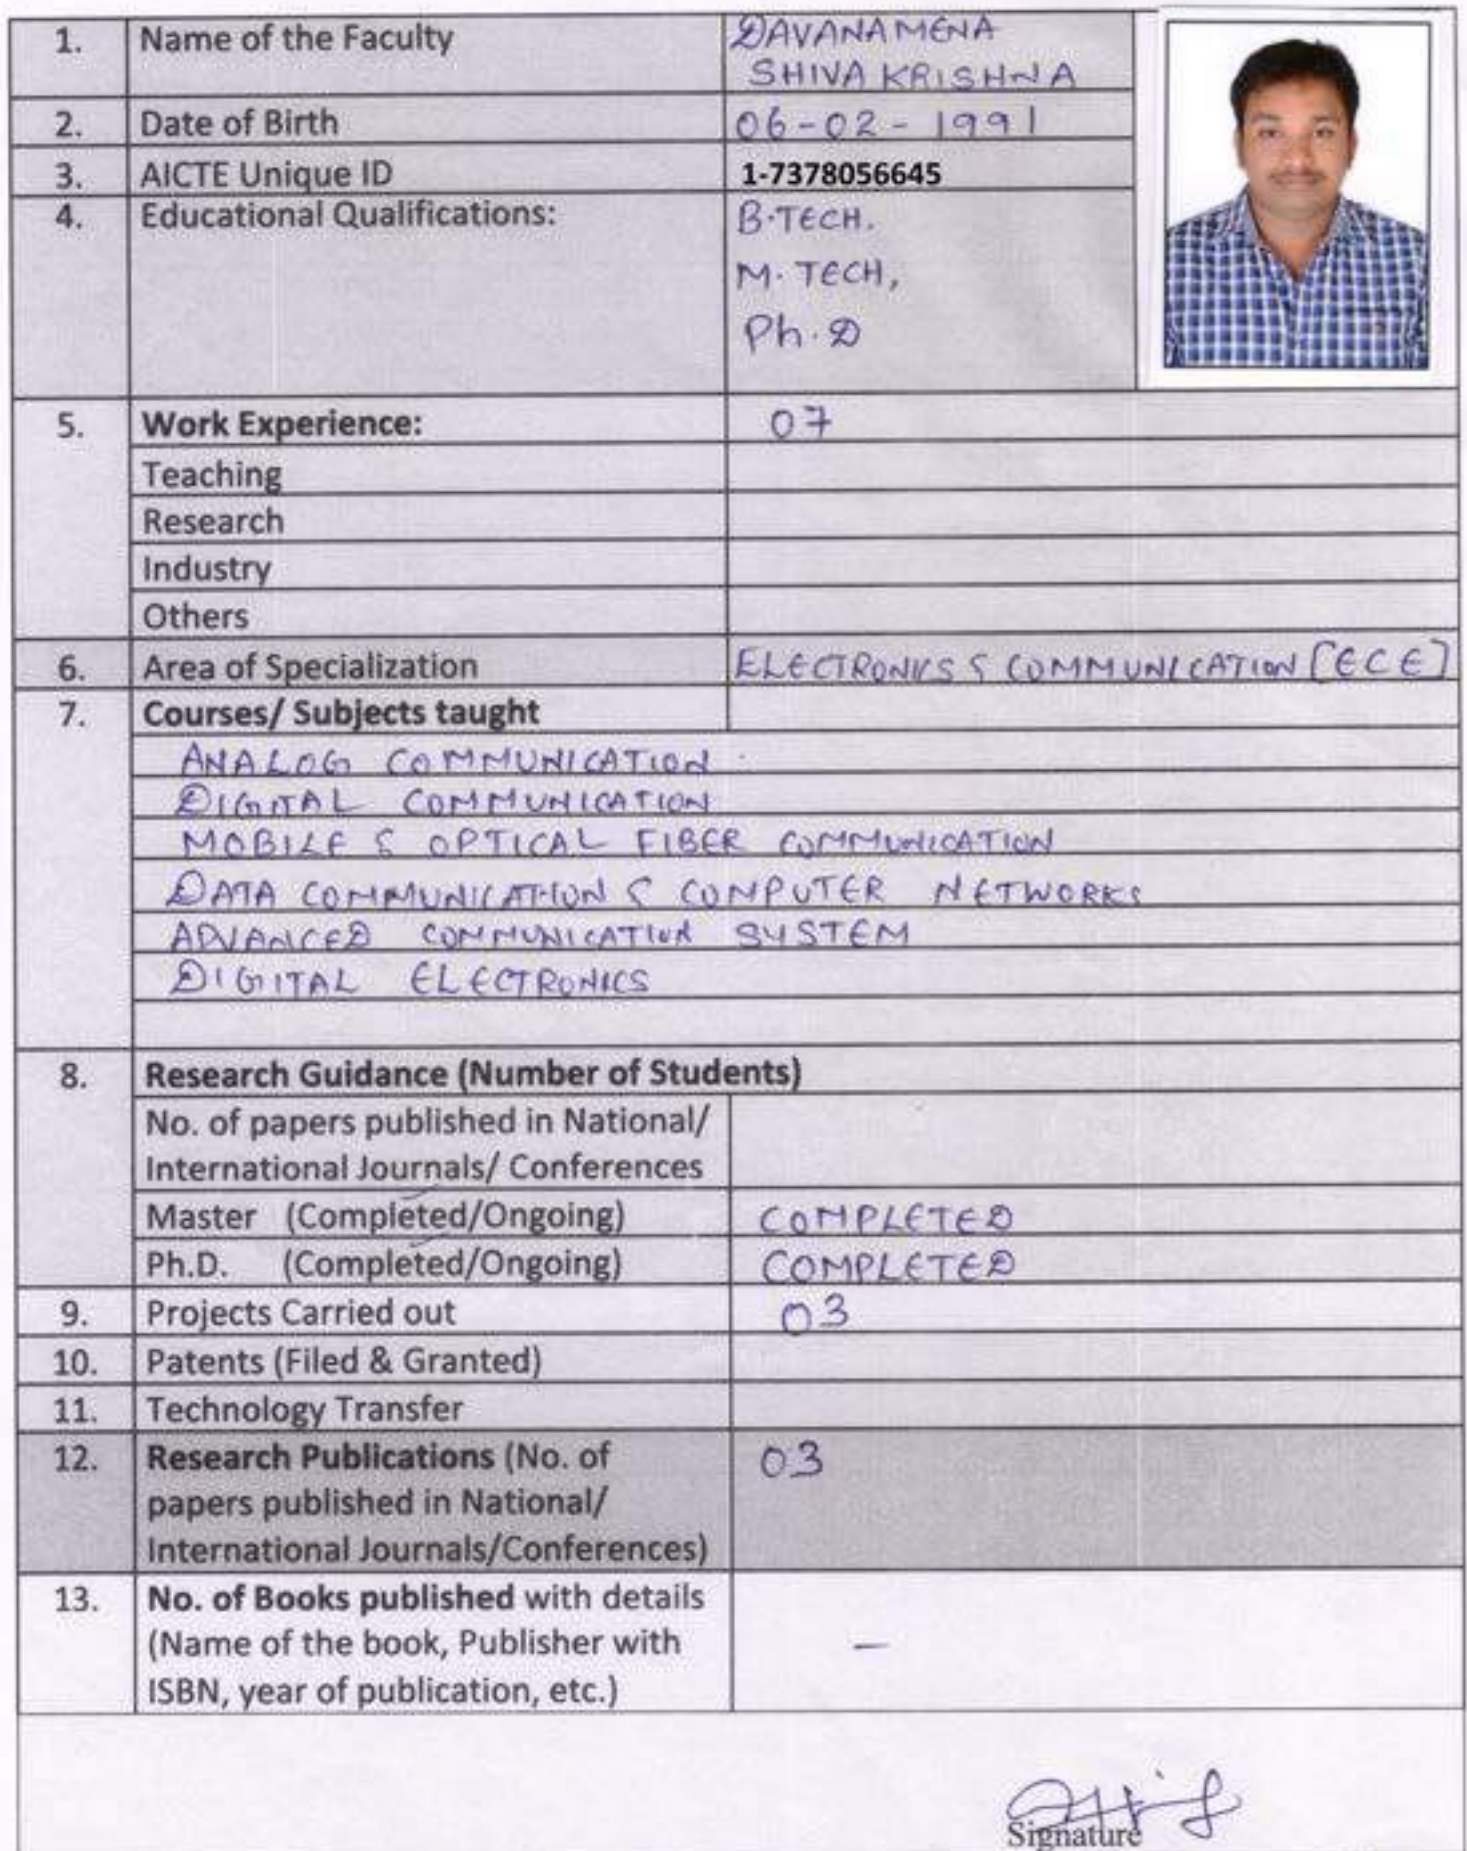 1. Name of the Faculty DAVANAMENA
SHIVA KRISHNA
2. Date of Birth 06-02-1991
3. AICTE Unique ID 1-7378056645
4. Educational Qualifications: B.TECH.
M.TECH,
Ph.D
5. Work Experience: 07
Teaching
Research
Industry
Others
6. Area of Specialization ELECTRONICS & COMMUNICATION [ECE]
7. Courses/ Subjects taught
ANALOG COMMUNICATION
DIGITAL COMMUNICATION
MOBILE & OPTICAL FIBER COMMUNICATION
DATA COMMUNICATION & COMPUTER NETWORKS
ADVANCED COMMUNICATION SYSTEM
DIGITAL ELECTRONICS
8. Research Guidance (Number of Students)
No. of papers published in National/
International Journals/ Conferences
Master (Completed/Ongoing) COMPLETED
Ph.D. (Completed/Ongoing) COMPLETED
9. Projects Carried out 03
10. Patents (Filed & Granted)
11. Technology Transfer
12. Research Publications (No. of 03
papers published in National/
International Journals/Conferences)
13. No. of Books published with details
(Name of the book, Publisher with —
ISBN, year of publication, etc.)
Signature